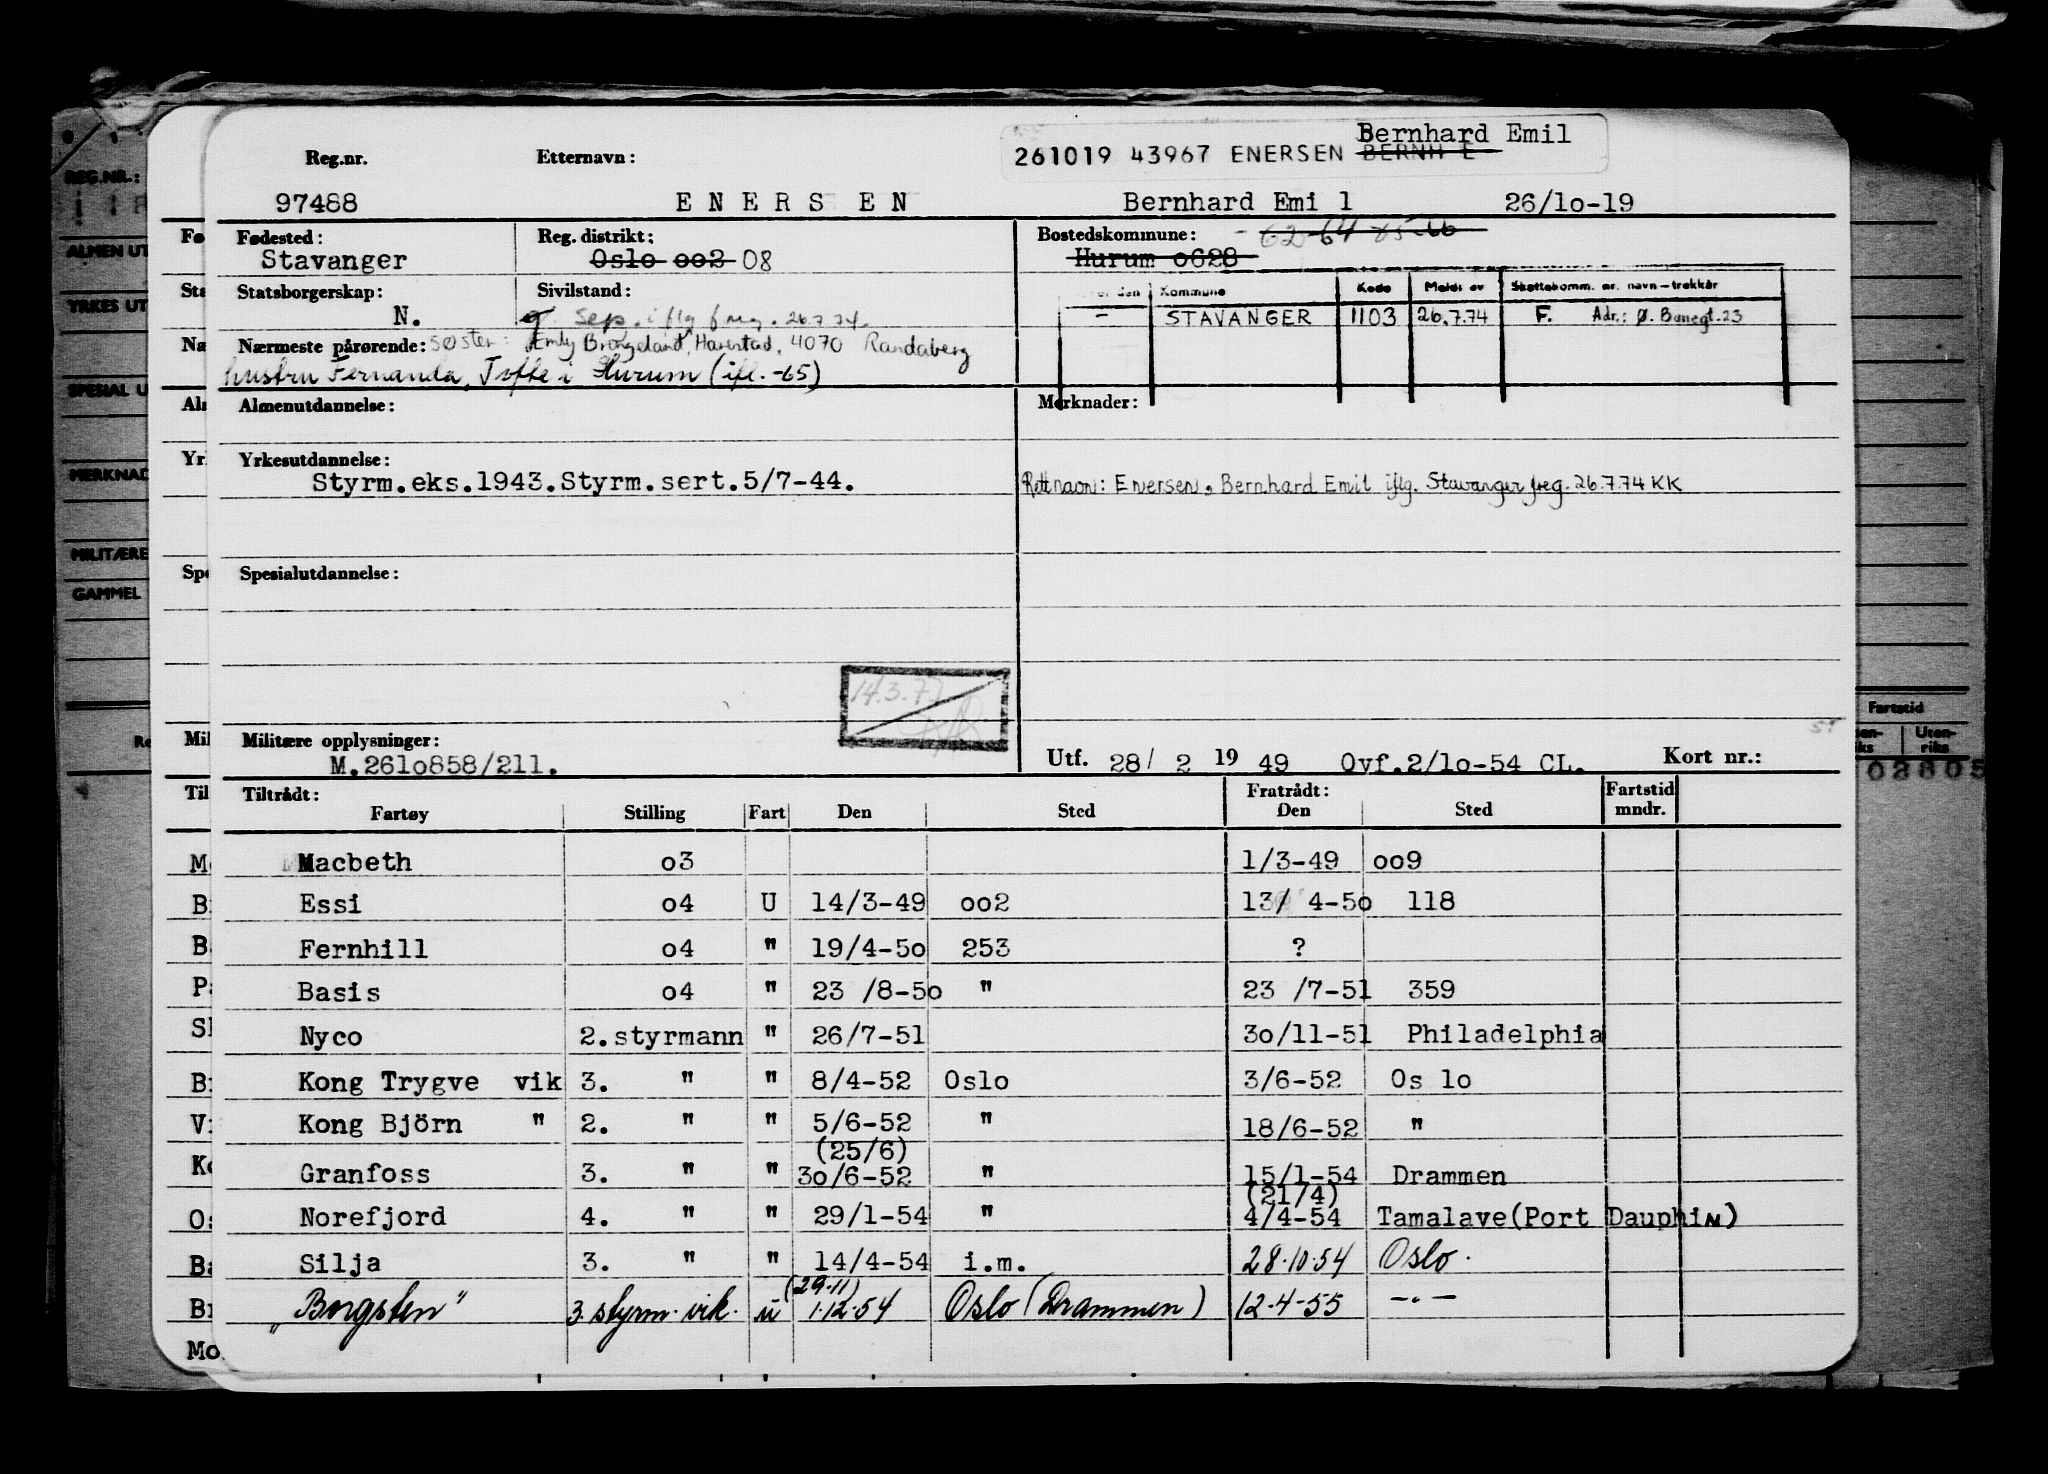 Bernhard Emil
261019 43967 ENERSEN BERNH E
Reg.nr. Etternavn:
97488 ENERSEN Bernhard Emi l 26/lo-19
Fødested: Reg. distrikt: Bostedskommune: - 62-64 65-66
Stavanger Oslo oo2 08 Hurum o628
Statsborgerskap: Sivilstand: den Kommune Kode Meldt av Skattekomm. nr. navn-trekkår
N. g. sep. iflg freg. 26.7.74. - STAVANGER 1103 26.7.74 F. Adr.: Ø. Banegt. 23
Nærmeste pårørende: søster: Emly Brogeland, Harestad, 4070 Randaberg
hustru Fernanda, Tofte i Hurum (ifl. -65)
Almenutdannelse: Merknader:
Yrkesutdannelse:
Styrm.eks.1943.Styrm.sert.5/7-44. Rett navn: Enersen, Bernhard Emil iflg. Stavanger freg. 26.7.74 KK
Spesialutdannelse:
14.3.77
Militære opplysninger:
M.261o858/211. Utf. 28/ 2 19 49 Ovf.2/lo-54 CL. Kort nr.:
Tiltrådt: Fratrådt: Fartstid
Fartøy Stilling Fart Den Sted Den Sted mndr.
Macbeth o3 1/3-49 oo9
Essi o4 U 14/3-49 oo2 13/ 4-5o 118
Fernhill o4 " 19/4-5o 253 ?
Basis o4 " 23 /8-5o " 23 /7-51 359
Nyco 2.styrmann " 26/7-51 3o/11-51 Philadelphia
Kong Trygve vik 3. " " 8/4-52 Oslo 3/6-52 Os lo
Kong Björn " 2. " " 5/6-52 " 18/6-52 "
(25/6)
Granfoss 3. " " 3o/6-52 " 15/1-54 Drammen
(21/4)
Norefjord 4. " " 29/1-54 " 4/4-54 Tamalave(Port Dauphin)
Silja 3. " " 14/4-54 i.m. 28.10.54 Oslo.
(29.11)
"Borgsten" 3. styrm. vik. u 1.12.54 Oslo (Drammen) 12.4-55 -"-